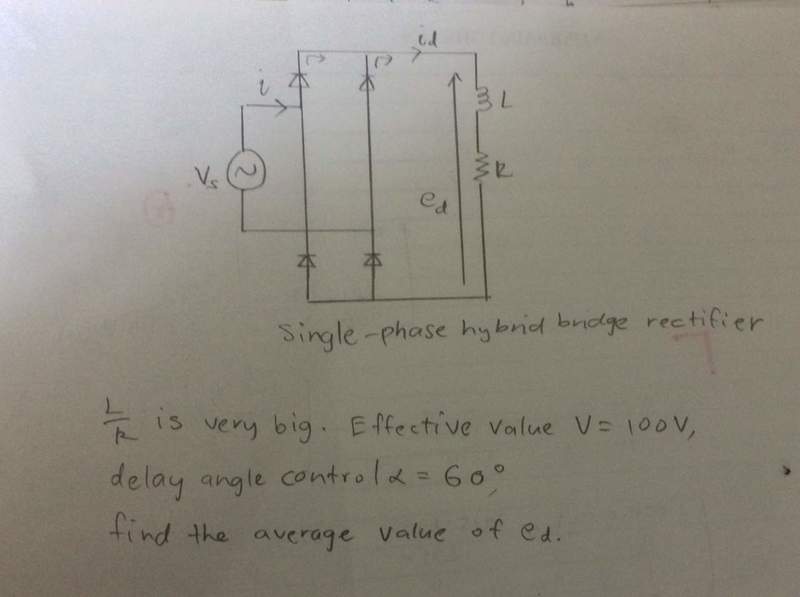 id
i
L
Vs
R
ed
Single-phase hybrid bridge rectifier
L/R is very big. Effective value V = 100V,
delay angle control α = 60°,
find the average value of ed.